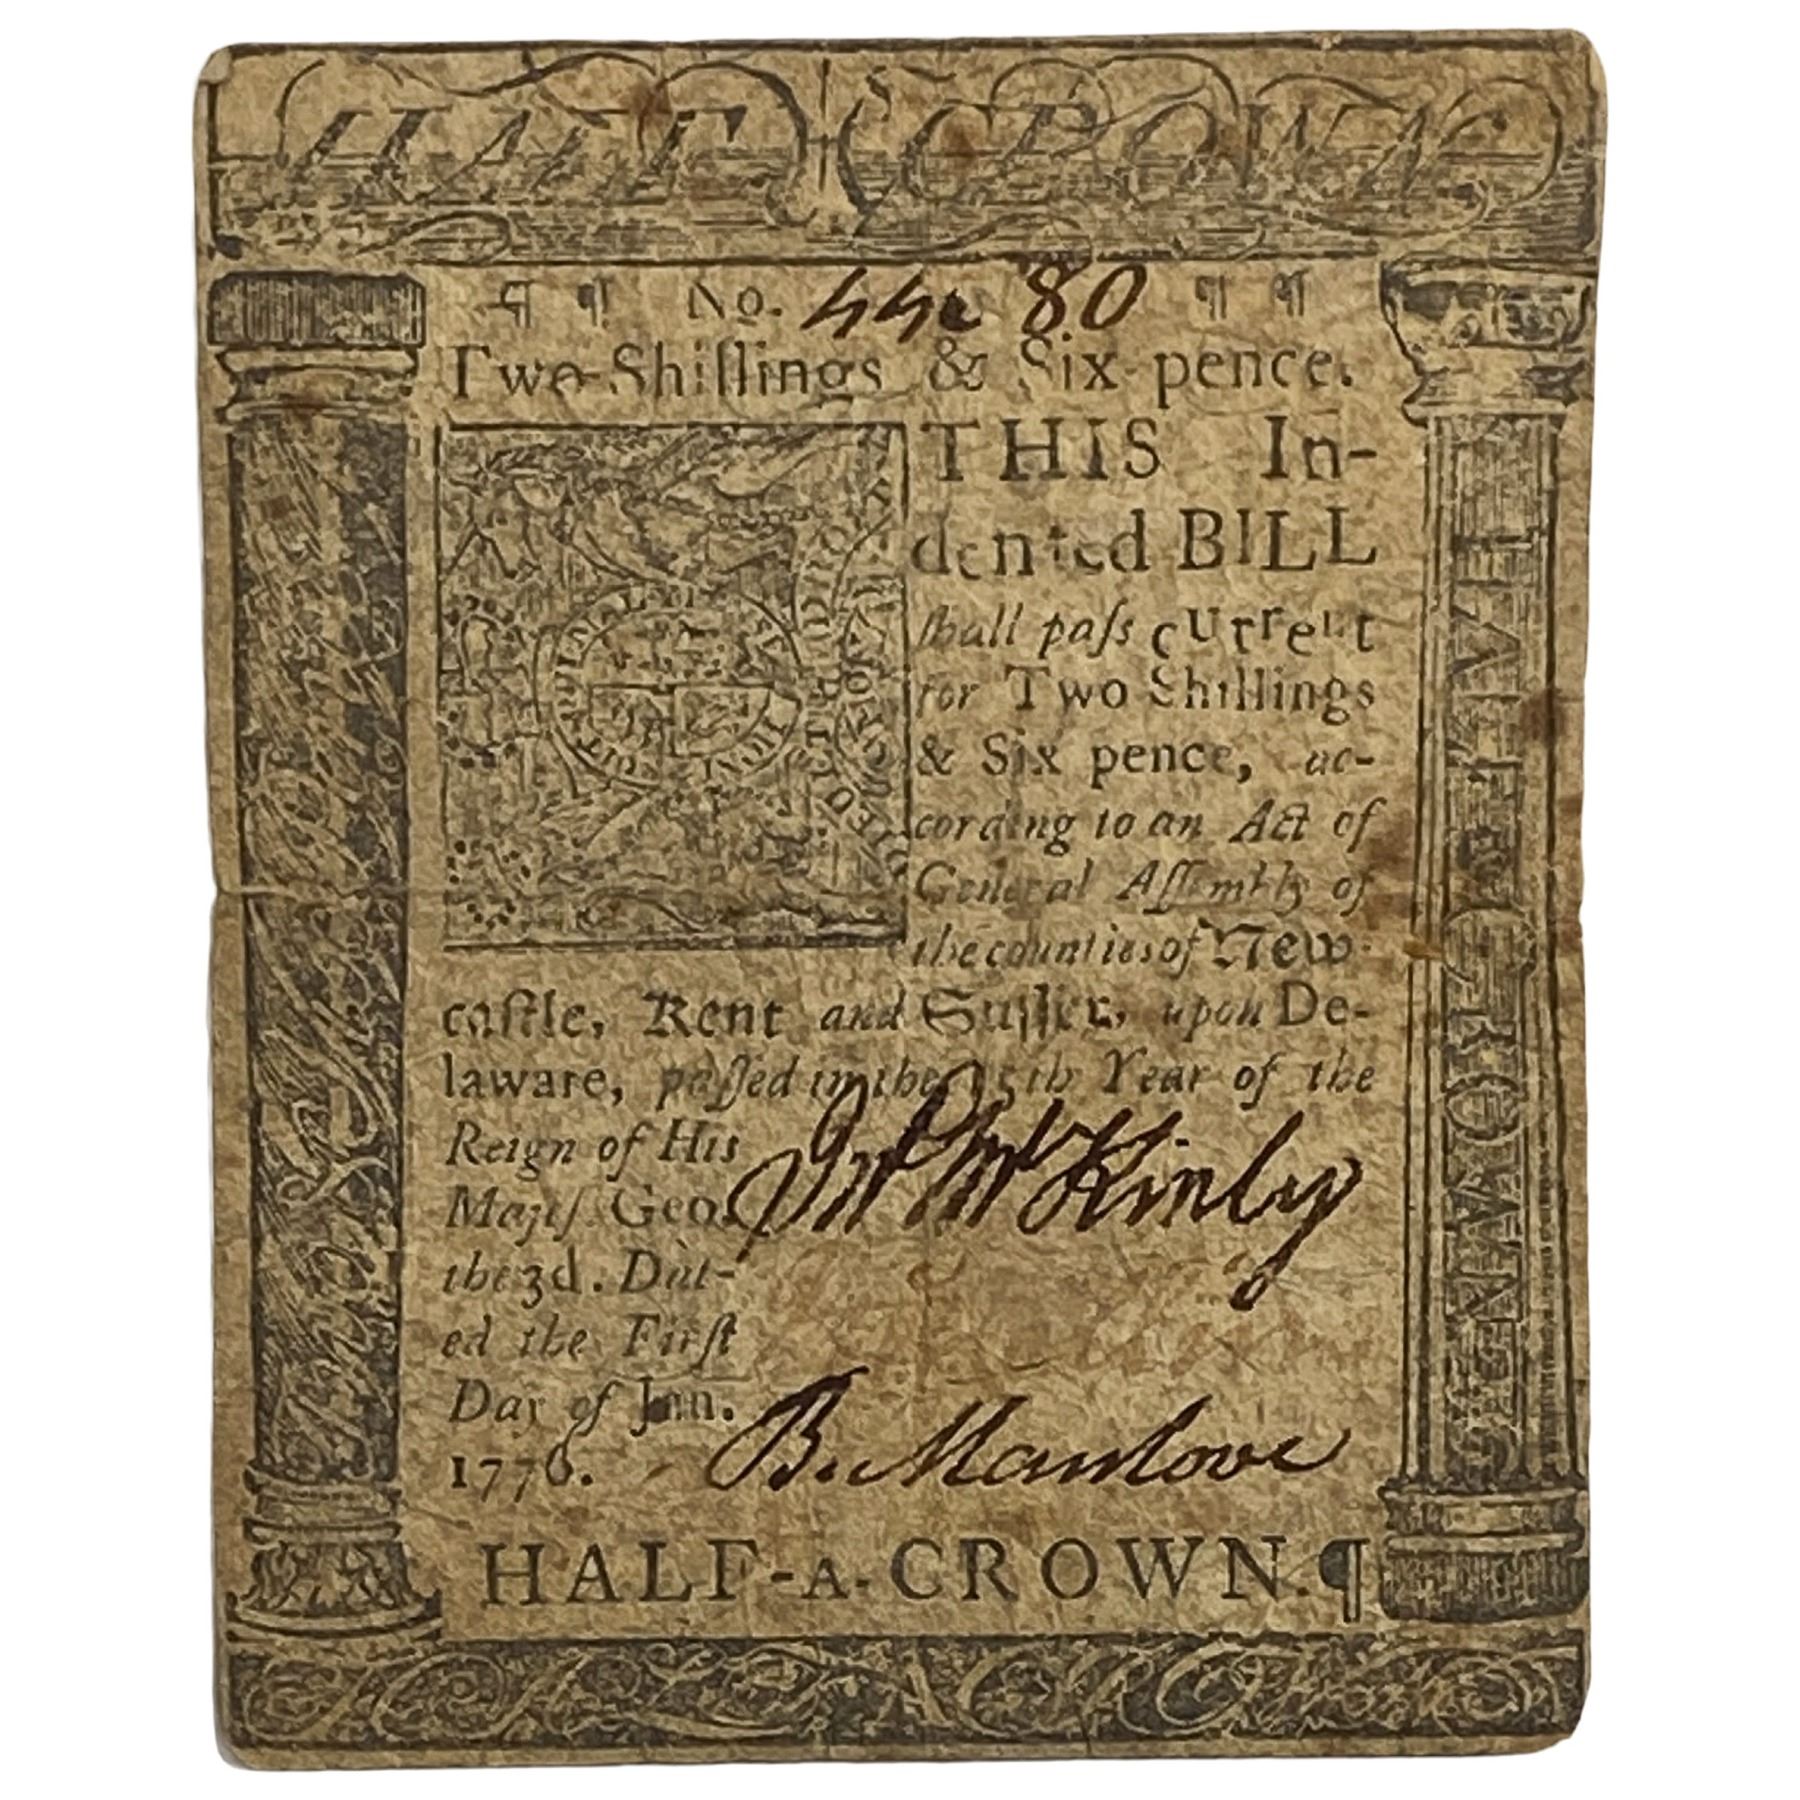 HALF CROWN
¶ ¶ No. 44280 ¶ ¶
Two Shillings & Six pence.
THIS In-
dented BILL
ſhall paſs current
for Two Shillings
& Six pence, ac-
cording to an Act of
General Aſſembly of
the counties of New-
caſtle, Kent and Suſſex, upon De-
laware, paſſed in the 15th Year of the
Reign of His
Majeſ. Geo.
the 3d. Dat-
ed the Firſt
Day of Jan.
1776.
Jno McKinly
B. Manlove
HALF-A-CROWN.¶
HALF A CROWN
DIEU ET MON DROIT
HONI SOIT QUI MAL Y
HALF A CRO